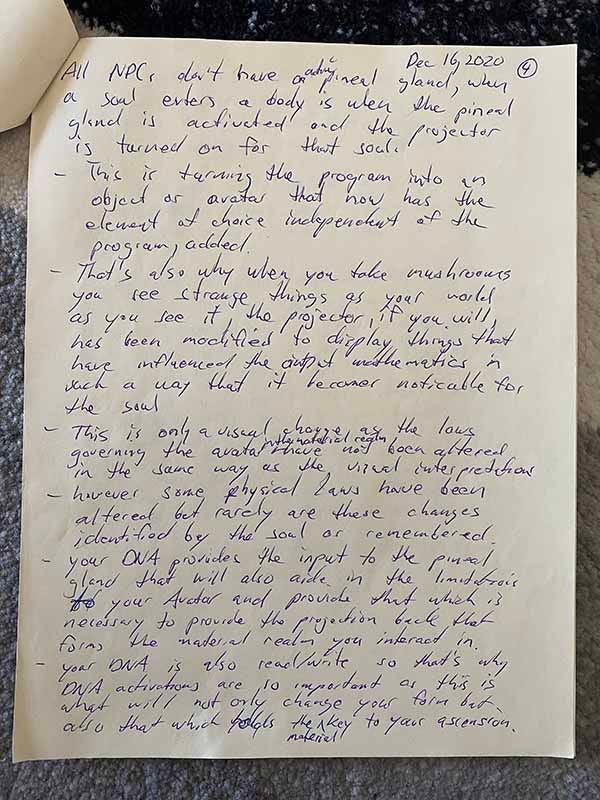 Dec 16, 2020 ④
All NPCs don't have an active pineal gland, when
a soul enters a body is when the pineal
gland is activated and the projector
is turned on for that soul.
- This is turning the program into an
object or avatar that now has the
element of choice independent of the
program, added.
- That's also why when you take mushrooms
you see strange things as your world
as you see it, the projector, if you will,
has been modified to display things that
have influenced the output mathematics in
such a way that it becomes noticable for
the soul
- This is only a visual change, as the laws
governing the avatar in the material realm have not been altered
in the same way as the visual interpretation
- however some physical laws have been
altered but rarely are these changes
identified by the soul or remembered.
- your DNA provides the input to the pineal
gland that will also aide in the limitations
your Avatar and provide that which is
necessary to provide the projection back that
forms the material realm you interact in.
- your DNA is also read/write, so that's why
DNA activations are so important as this is
what will not only change your form but
also that which holds the material key to your ascension.